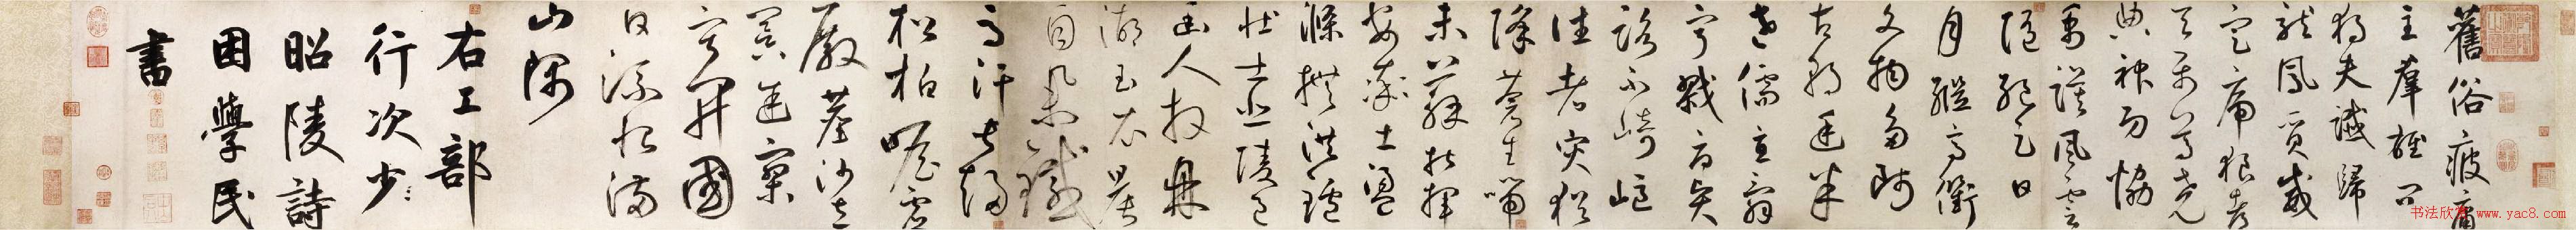 舊俗疲庸
主羣雄問
獨夫讖歸
龍鳳質威
定虎狼都
天屬尊堯
典神功協
禹謨風雲
隨絕足日
月繼高衢
文物多師
古朝廷半
老儒直辭
寧戮辱賢
路不崎嶇
往者災猶
降蒼生喘
未蘇指揮
安率土盪
滌撫洪爐
壯士悲陵邑
幽人拜鼎
湖玉衣晨
自舉鐵
馬汗常趨
松柏瞻虛
殿塵沙立
冥途寂
寥開國
日流恨滿
山隅
右工部
行次少
昭陵詩
困學民
書
书法欣赏 www.yac8.com